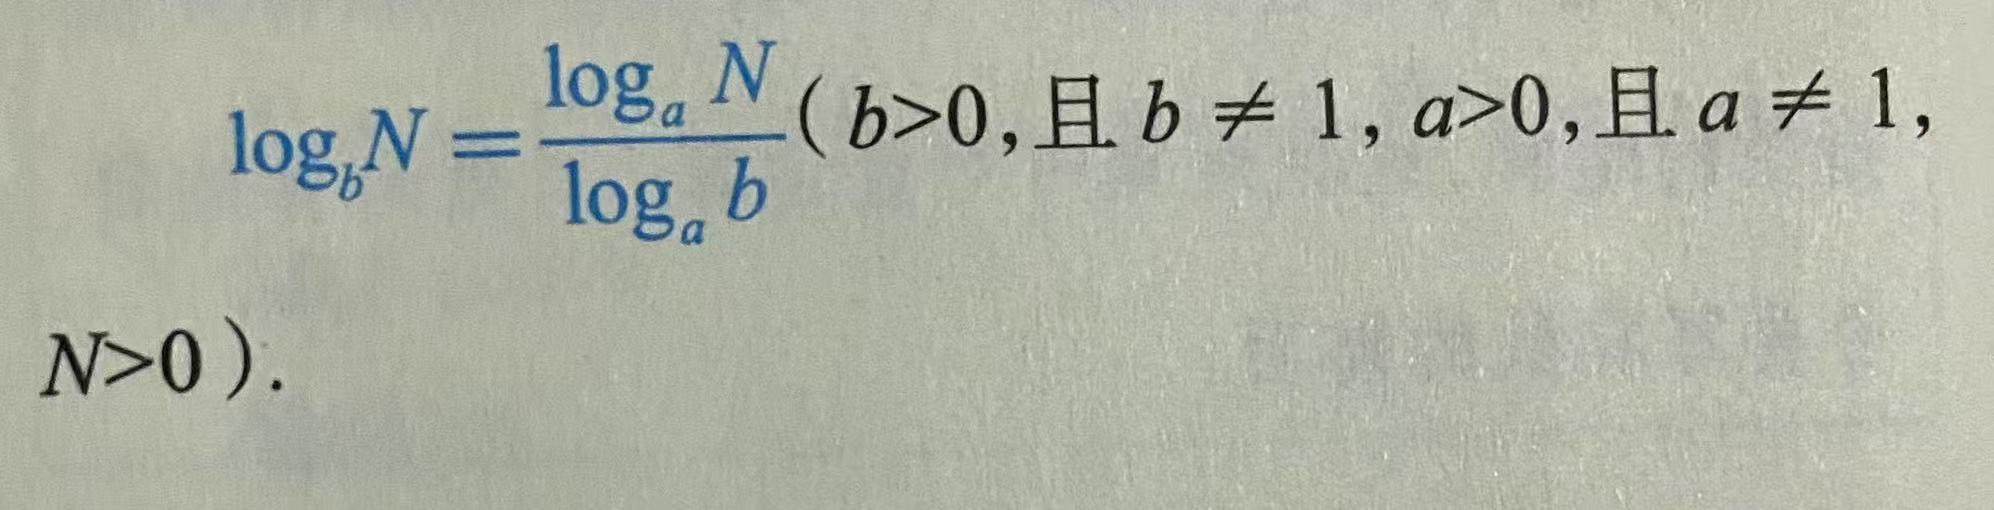 log_b N = \frac{log_a N}{log_a b} ( b>0, 且 b ≠ 1, a>0, 且 a ≠ 1,
N>0 ).